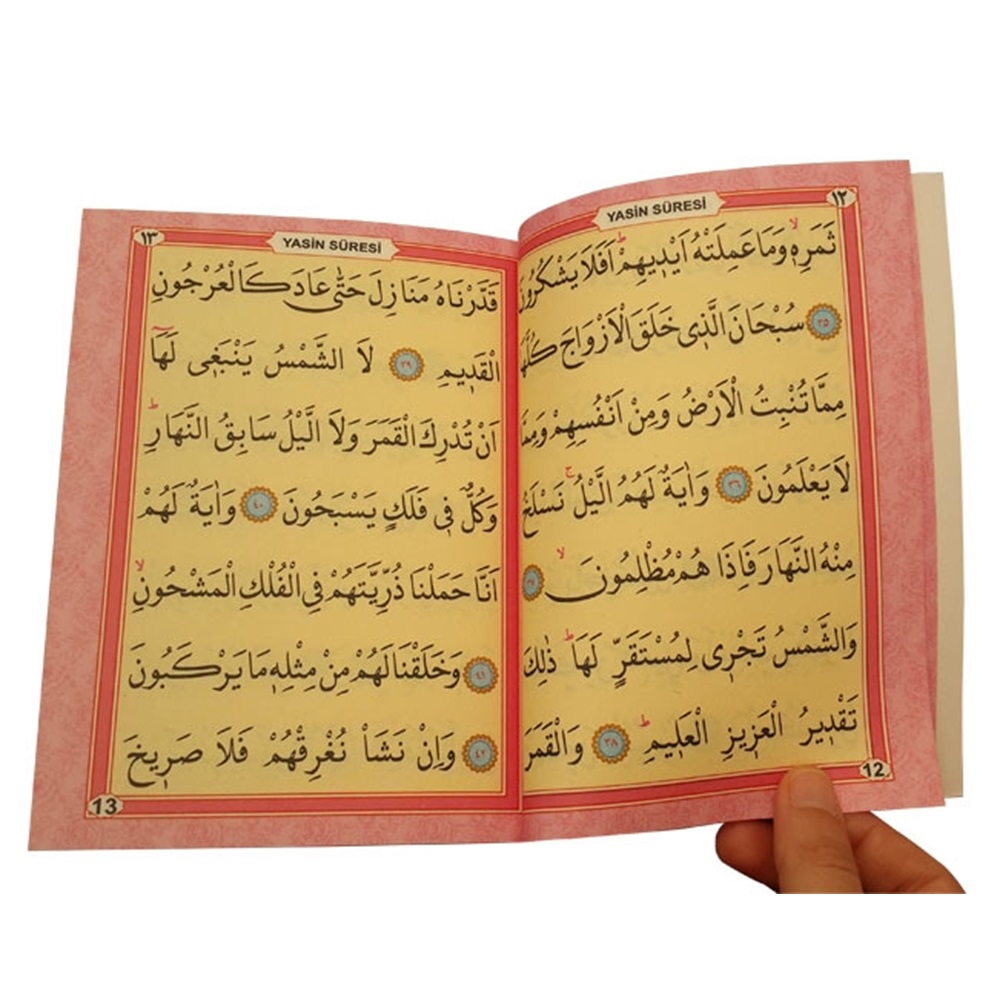 YASİN SÛRESİ ١٢
ثَمَرِهٖۙ وَمَا عَمِلَتْهُ اَيْدٖيهِمْۜ اَفَلَا يَشْكُرُونَ
٣٥ سُبْحَانَ الَّذٖى خَلَقَ الْاَزْوَاجَ كُلَّهَا
مِمَّا تُنْبِتُ الْاَرْضُ وَمِنْ اَنْفُسِهِمْ وَمِمَّا
لَا يَعْلَمُونَ ٣٦ وَاٰيَةٌ لَهُمُ الَّيْلُۚ نَسْلَخُ
مِنْهُ النَّهَارَ فَاِذَا هُمْ مُظْلِمُونَۙ ٣٧
وَالشَّمْسُ تَجْرٖى لِمُسْتَقَرٍّ لَهَاۜ ذٰلِكَ
تَقْدٖيرُ الْعَزٖيزِ الْعَلٖيمِۜ ٣٨ وَالْقَمَرَ
12
١٣ YASİN SÛRESİ
قَدَّرْنَاهُ مَنَازِلَ حَتّٰى عَادَ كَالْعُرْجُونِ
الْقَدٖيمِ ٣٩ لَا الشَّمْسُ يَنْبَغٖى لَهَٓا
اَنْ تُدْرِكَ الْقَمَرَ وَلَا الَّيْلُ سَابِقُ النَّهَارِۜ
وَكُلٌّ فٖى فَلَكٍ يَسْبَحُونَ ٤٠ وَاٰيَةٌ لَهُمْ
اَنَّا حَمَلْنَا ذُرِّيَّتَهُمْ فِى الْفُلْكِ الْمَشْحُونِۙ
٤١ وَخَلَقْنَا لَهُمْ مِنْ مِثْلِهٖ مَا يَرْكَبُونَ
٤٢ وَاِنْ نَشَأْ نُغْرِقْهُمْ فَلَا صَرٖيخَ
13